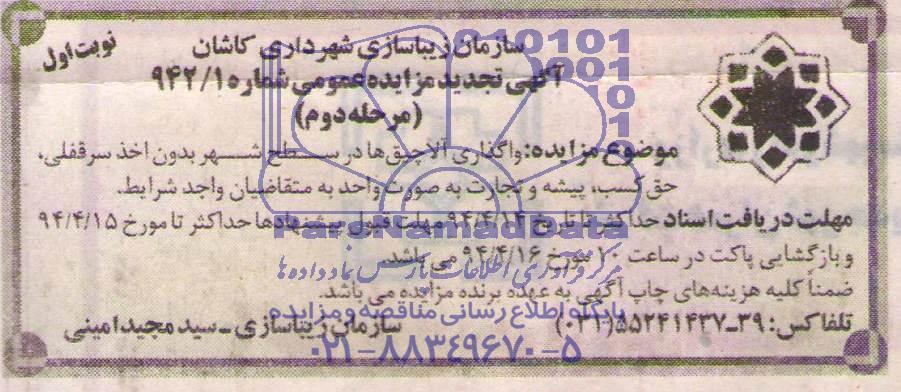 سازمان زیباسازی شهرداری کاشان
نوبت اول
آگهی تجدید مزایده عمومی شماره ۹۴۲/۱
(مرحله دوم)
موضوع مزایده: واگذاری آلاچیق‌ها در سطح شهر بدون اخذ سرقفلی،
حق کسب، پیشه و تجارت به صورت واحد به متقاضیان واجد شرایط.
مهلت دریافت اسناد حداکثر تا تاریخ ۹۴/۴/۱۴ مهلت قبول پیشنهادها حداکثر تا مورخ ۹۴/۴/۱۵
و بازگشایی پاکت در ساعت ۱۰ مورخ ۹۴/۴/۱۶ می باشد.
ضمناً کلیه هزینه‌های چاپ آگهی به عهده برنده مزایده می باشد.
تلفاکس: ۳۹-۵۵۲۴۱۴۳۷(۰۳۱)
سازمان زیباسازی - سید مجید امینی
ParsNamadData
مرکز فرآوری اطلاعات پارس نماد داده ها
پایگاه اطلاع رسانی مناقصه و مزایده
۰۲۱-۸۸۳۴۹۶۷۰-۵